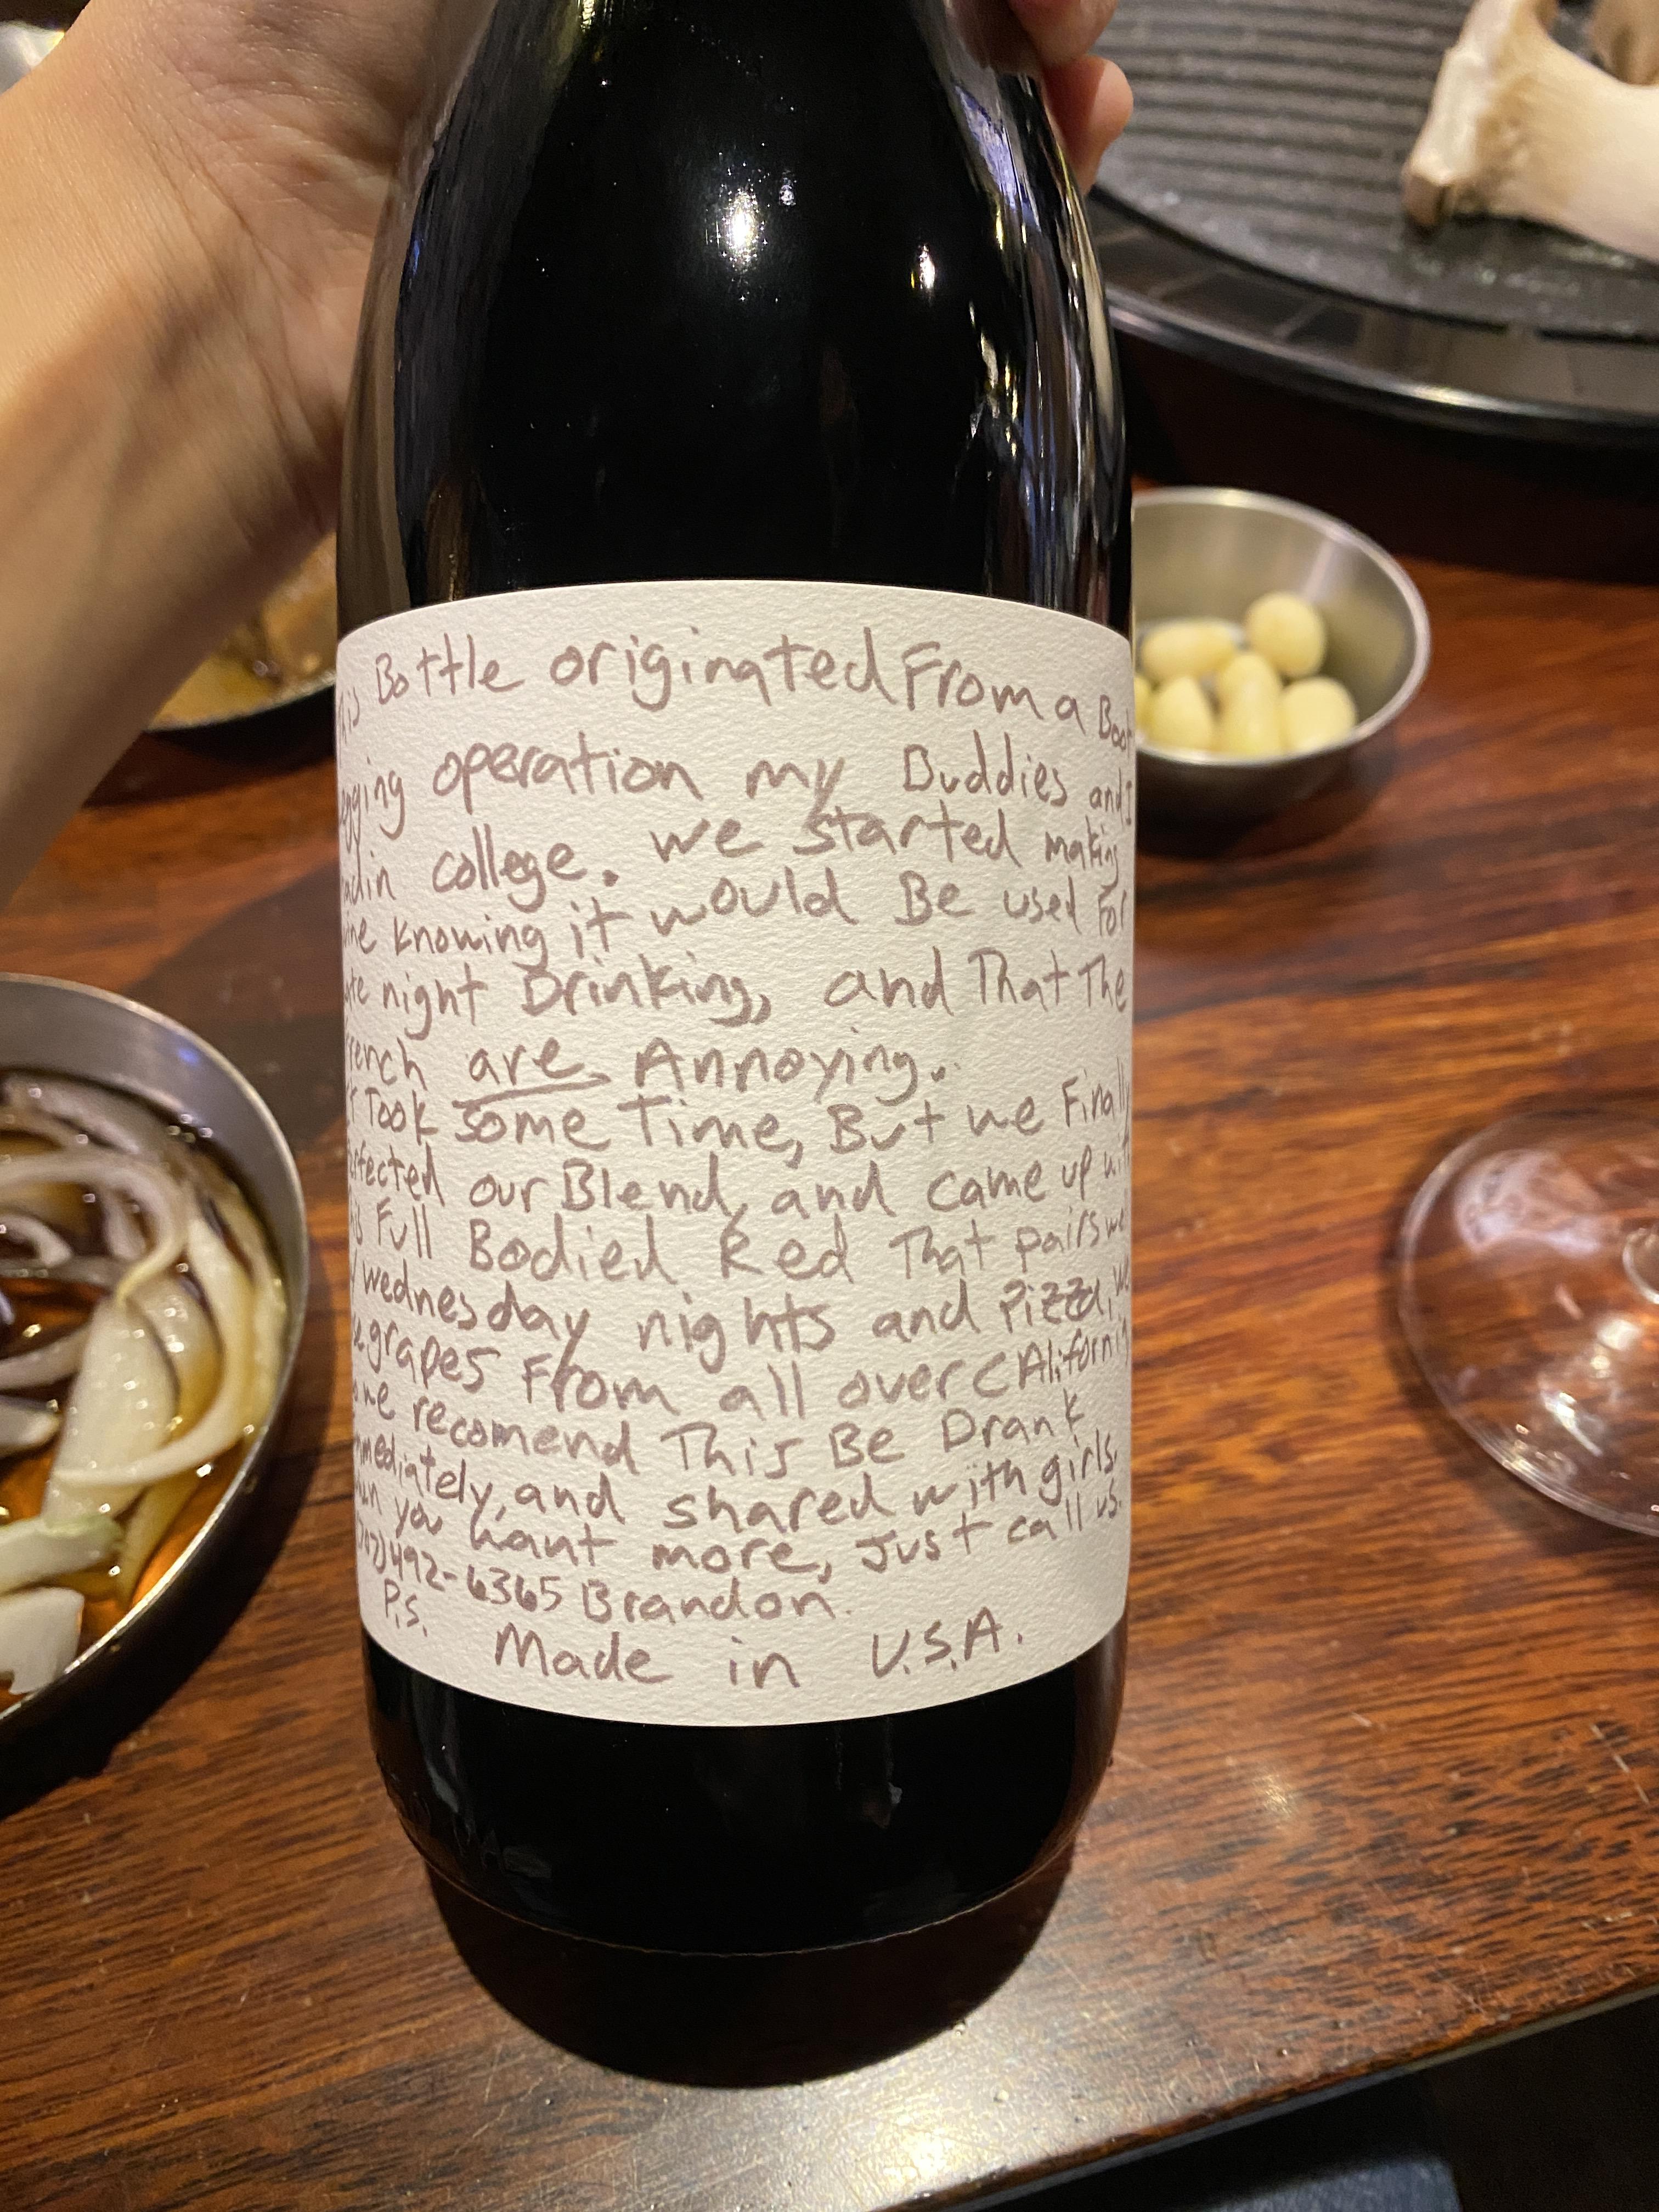 This Bottle originated From a Boot
legging operation my Buddies and I
had in college. we started making
wine knowing it would Be used For
late night Drinking, and That The
French are Annoying.
It Took some Time, But we Finally
perfected our Blend, and came up with
this Full Bodied Red That pairs well
w/ wednesday nights and Pizza, we
use grapes From all over CAlifornia
so we recomend This Be Drank
immediately, and shared with girls,
when you want more, Just call us.
(707)492-6365 Brandon.
P.S. Made in U.S.A.